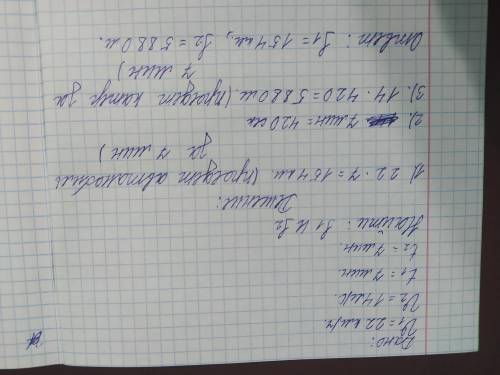 Дано:
V₁ = 22 км/ч.
V₂ = 14 м/с.
t₁ = 7 мин.
t₂ = 7 мин.
Найти: S₁ и S₂
Решение:
1) 22 · 7 = 154 км (проедет автомобиль
за 7 мин)
2). 7 мин = 420 сек
3). 14 · 420 = 5880 м. (проедет катер за
7 мин)
Ответ: S₁ = 154 км, S₂ = 5880 м.